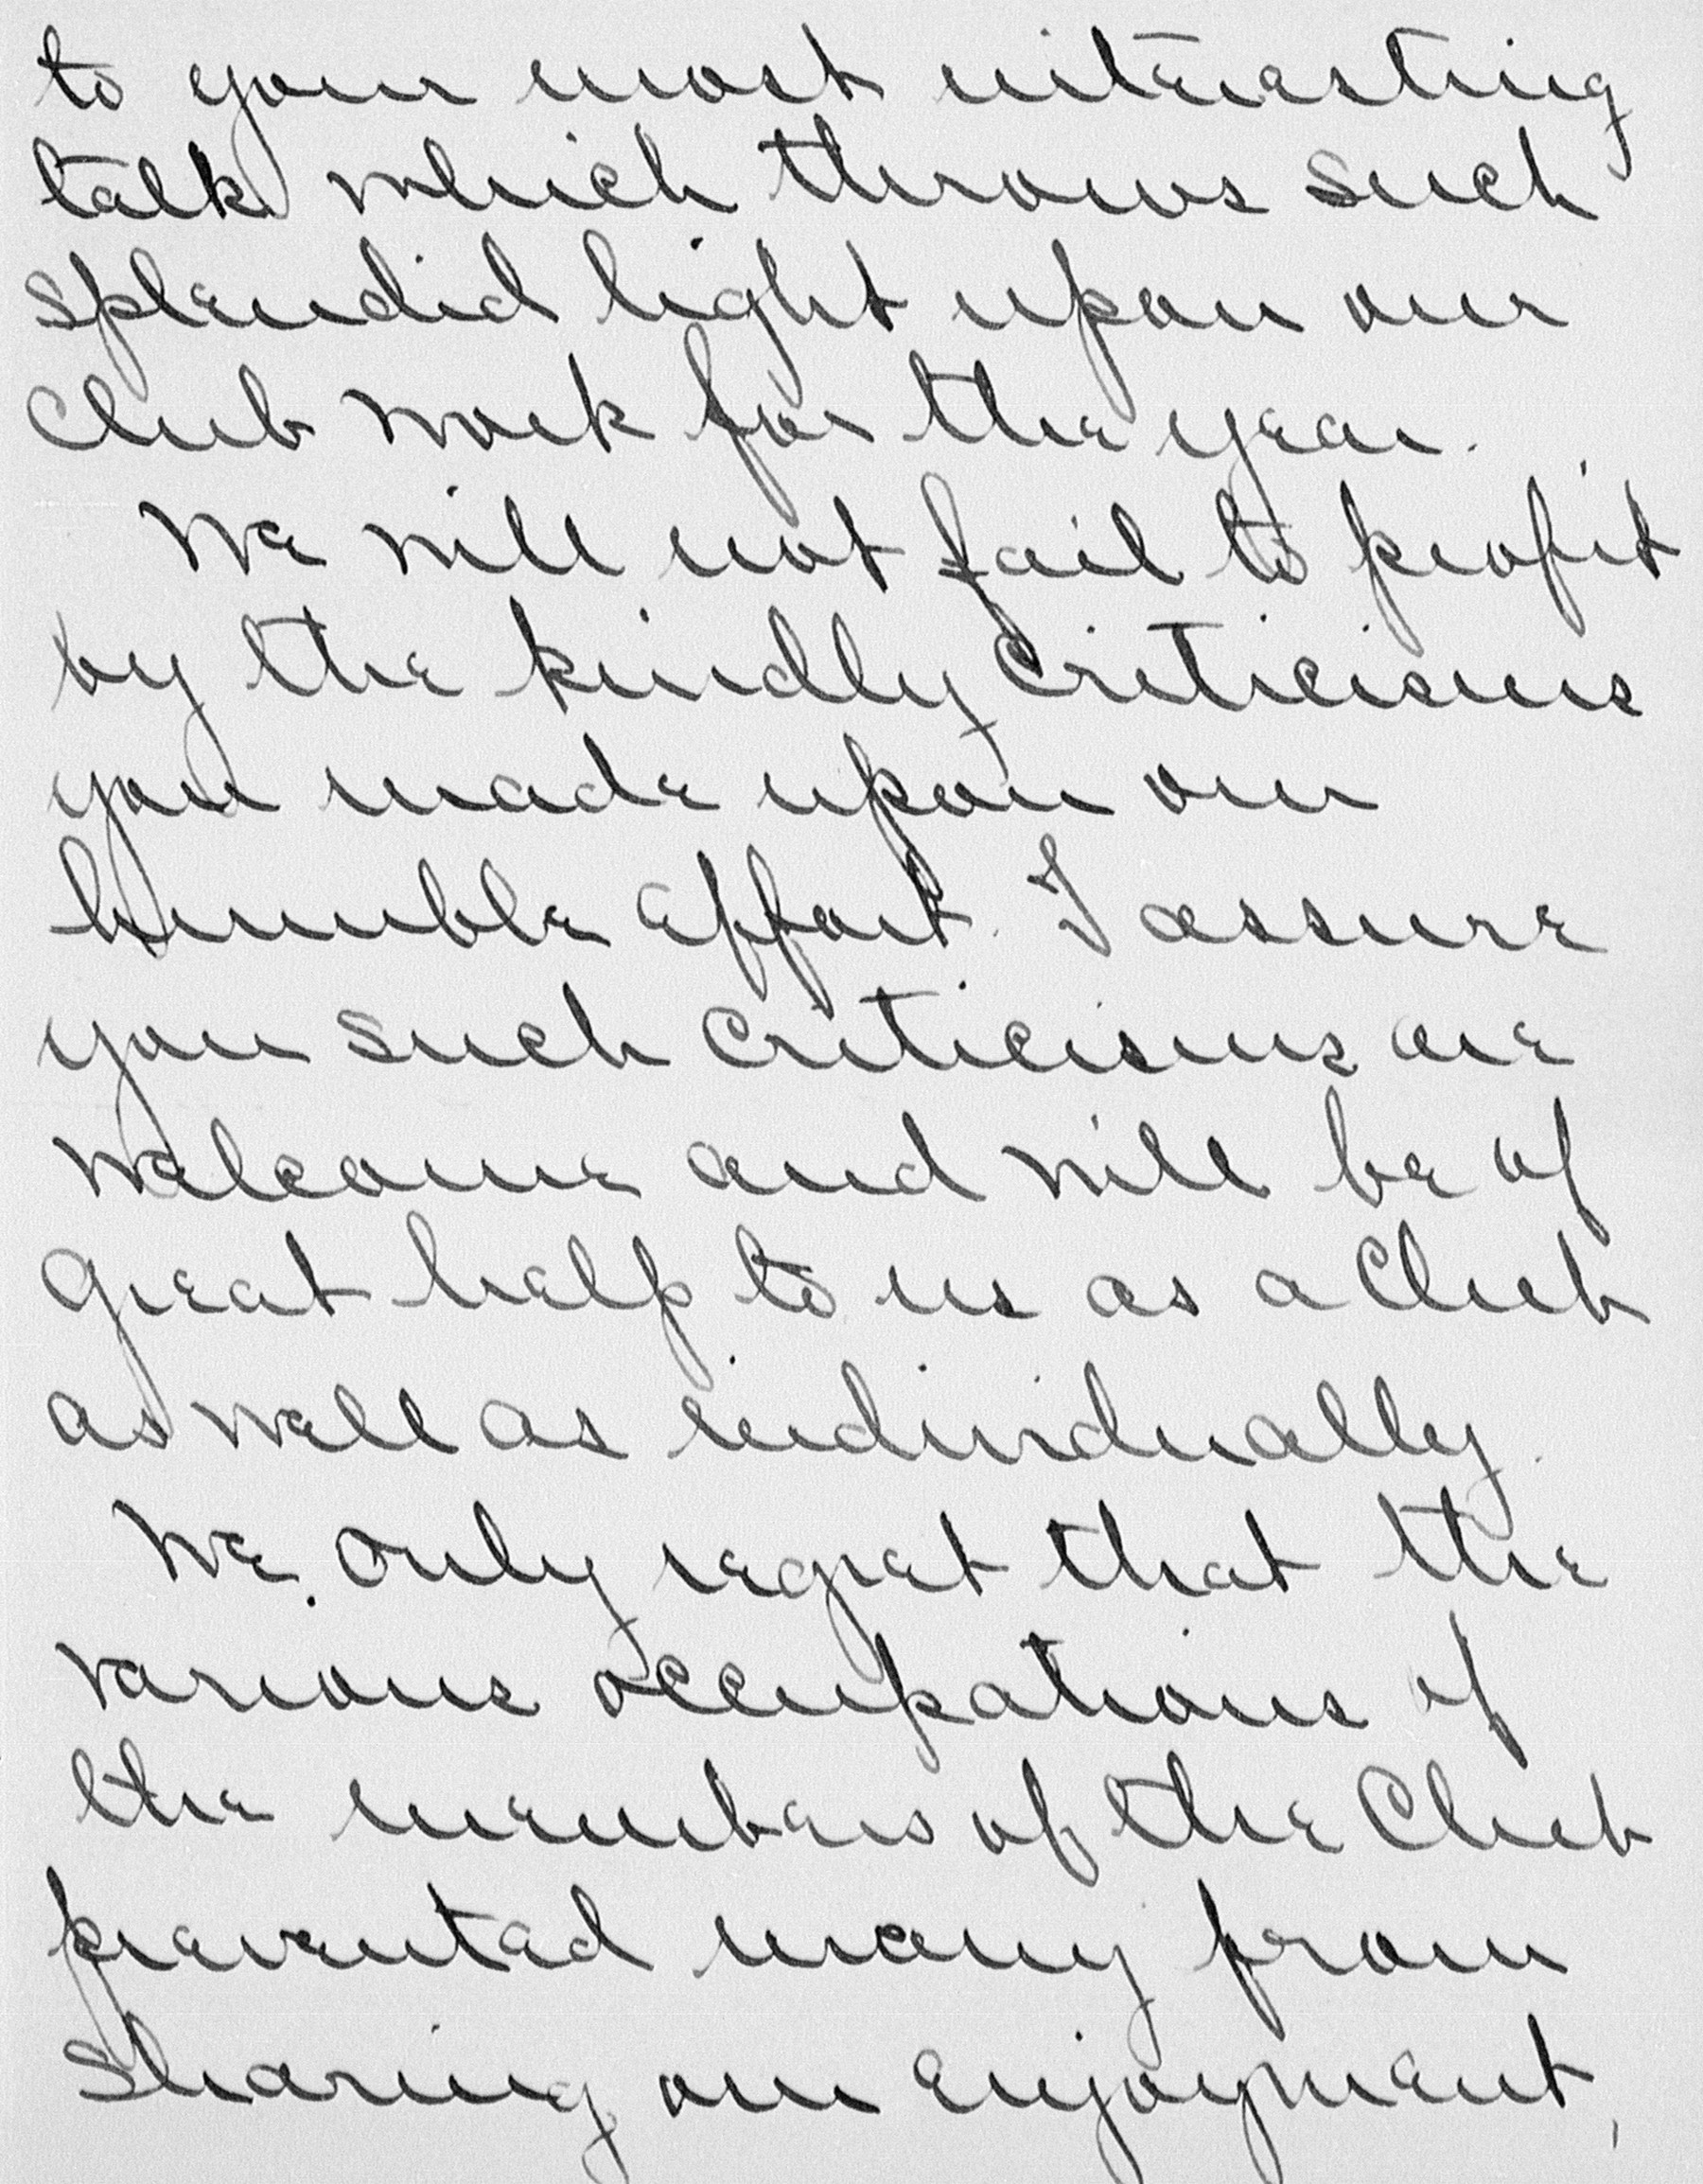 to your most interesting
talk which throws such
splendid light upon our
Club work for the year.
We will not fail to profit
by the kindly criticisms
you made upon our
humble effort. I assure
you such criticisms are
welcome and will be of
great help to us as a Club
as well as individually.
We only regret that the
various occupations of
the members of the Club
prevented many from
sharing our enjoyment,